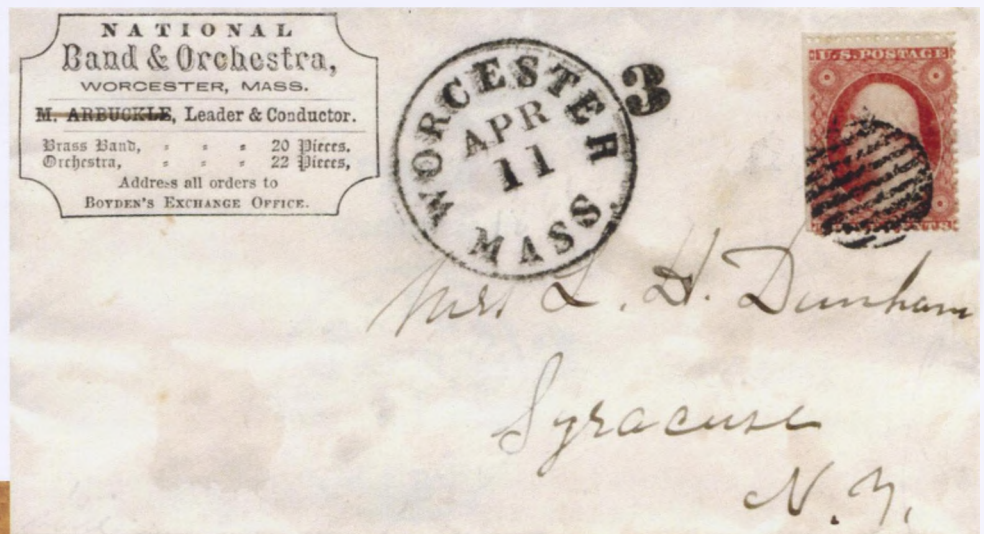 NATIONAL
Band & Orchestra,
WORCESTER, MASS.
M. ARBUCKLE, Leader & Conductor.
Brass Band, " " " 20 Pieces.
Orchestra, " " " 22 Pieces,
Address all orders to
BOYDEN'S EXCHANGE OFFICE.
WORCESTER
APR
11
MASS.
3
U.S. POSTAGE
Mrs L. H. Dunham
Syracuse
N. Y.